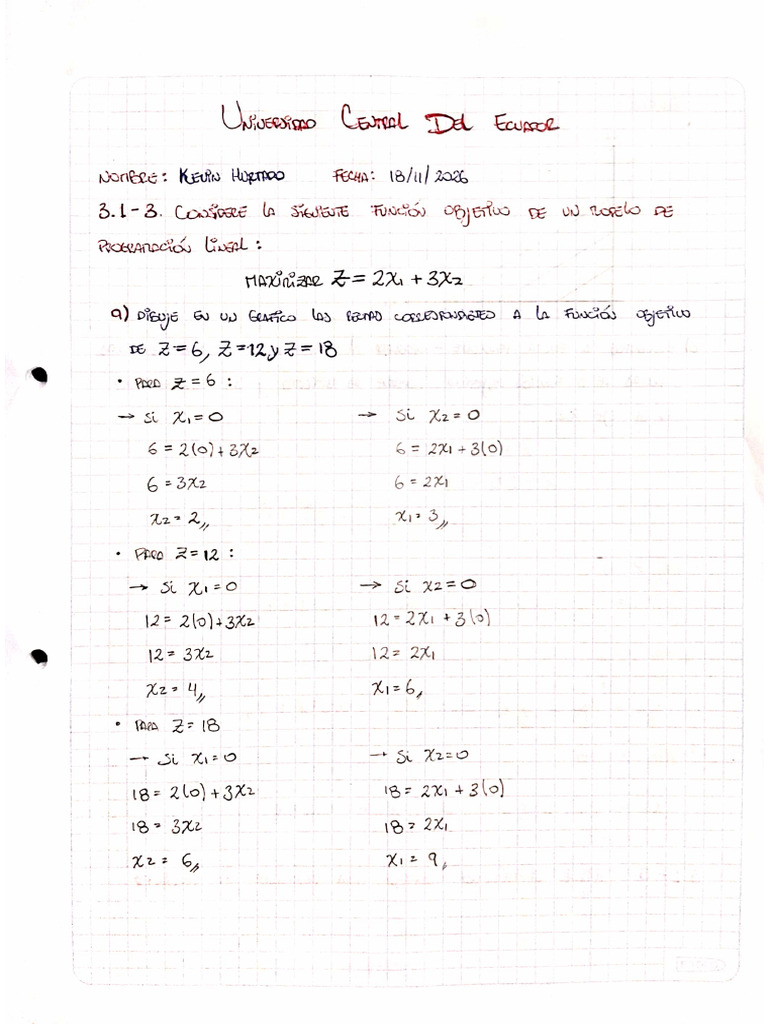 UNIVERSIDAD CENTRAL DEL ECUADOR
NOMBRE: KEVIN HURTADO FECHA: 18/11/2026
3.1-3. CONSIDERE LA SIGUIENTE FUNCIÓN OBJETIVO DE UN MODELO DE
PROGRAMACIÓN LINEAL:
MAXIMIZAR Z = 2x1 + 3x2
a) DIBUJE EN UN GRAFICO LAS RECTAS CORRESPONDIENTES A LA FUNCIÓN OBJETIVO
DE Z = 6, Z = 12 y Z = 18
• PARA Z = 6 :
→ Si x1 = 0 → Si x2 = 0
6 = 2(0) + 3x2 6 = 2x1 + 3(0)
6 = 3x2 6 = 2x1
x2 = 2,, x1 = 3,,
• PARA Z = 12 :
→ Si x1 = 0 → Si x2 = 0
12 = 2(0) + 3x2 12 = 2x1 + 3(0)
12 = 3x2 12 = 2x1
x2 = 4,, x1 = 6,,
• PARA Z = 18
→ Si x1 = 0 → Si x2 = 0
18 = 2(0) + 3x2 18 = 2x1 + 3(0)
18 = 3x2 18 = 2x1
x2 = 6,, x1 = 9,,